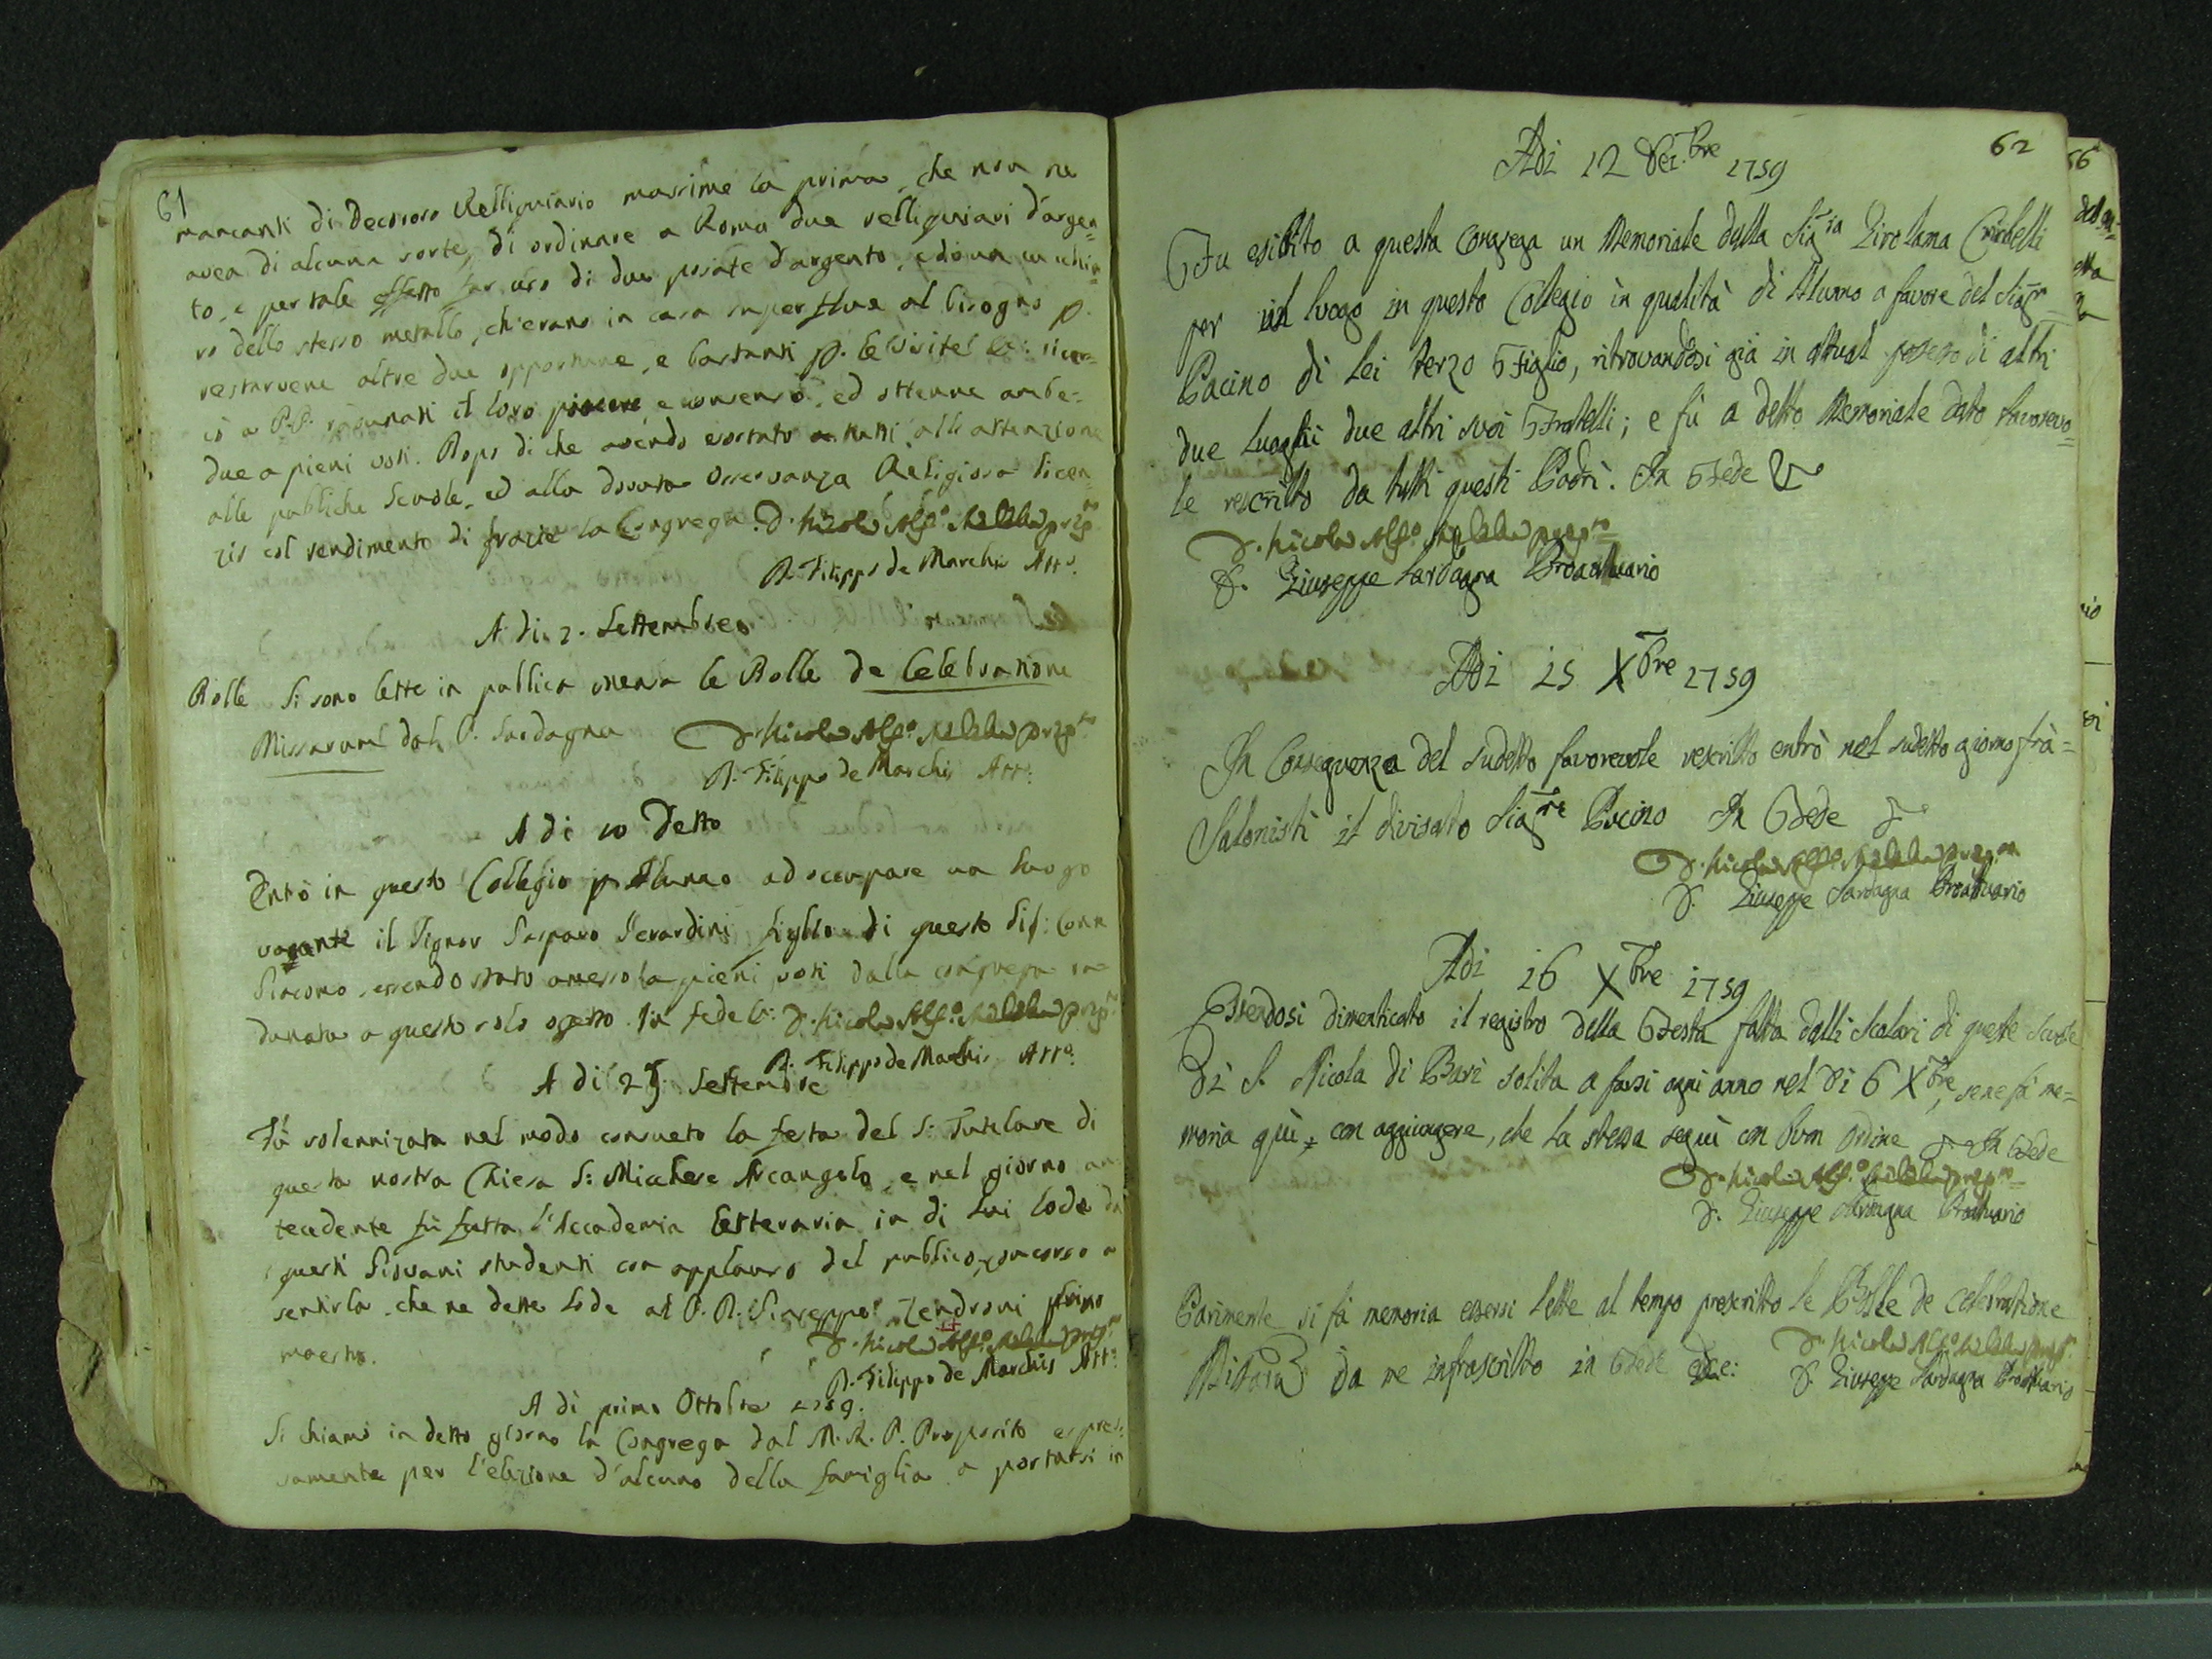 61
mancanti di decoroso Relliquiario massime la prima, che non ne
avea di alcuna sorte, di ordinare a Roma due relliquiari d'argen=
to, e per tale effetto far uso di due posate d'argento, ed un cuchia=
ro dello stesso metallo, ch'erano in casa superflue al bisogno p.
restarvene altre due opportune, e bastanti p. le visite &c: ricer=
cò a P.P. ragunati il loro piacere e consenso, ed ottenne ambe=
due a pieni voti. Dopo di che avendo esortato a tutti all'attenzione
alle publiche Scuole, ed alla dovuta osservanza Religiosa licen=
ziò col rendimento di grazie la Congrega. D. Nicolò Alf.o prep.to
D. Filippo de Marchis Att.o
A di 2. Settembre
Bolle Si sono lette in publica mensa le Bolle de Celebratione
Missarum dal P. Sardagna D. Nicolò Alf.o prep.to
D. Filippo de Marchis Att.o
A di 10 detto
Entrò in questo Collegio p. Alunno ad occupare un luogo
vacante il Signor Gasparo Gerardini figlio di questo Sig: Conte
Giacomo, essendo stato ammesso a pieni voti dalla congrega ra=
dunata a questo solo oggetto. In fede &c: D. Nicolò Alf.o prep.to
D. Filippo de Marchis Att.o
A di 29. Settembre
Fù solennizata nel modo consueto la festa del S: Tutelare di
questa nostra Chiesa S: Michele Arcangelo, e nel giorno an=
tecedente fù fatta l'Accademia letteraria in di lui lode da
questi Giovani studenti con applauso del publico, concorso a
sentirla, che ne dette lode al P. D. Giuseppe Zendroni primo
maestro. D. Nicolò Alf.o prep.to
D. Filippo de Marchis Att.o
A di primo Ottobre 1759.
Si chiamò in detto giorno la Congrega dal M. R. P. Preposito espres=
samente per l'elezione d'alcuno della famiglia a portarsi in
62
Adi 12 Dec.bre 1759
Fu esibito a questa Congrega un Memoriale dalla Sig.ra Girolama Crivelli
per un luogo in questo Collegio in qualità di Alunno a favore del Sig.re
Pacino di Lei terzo Figlio, ritrovandosi già in attual possesso di altri
due Luoghi due altri suoi Fratelli; e fù a detto Memoriale dato favorevo=
le rescritto da tutti questi Padri. In Fede
D. Nicolò Alf.o prep.to
D. Giuseppe Sardagna Proattuario
Adi 15 Xbre 1759
In Conseguenza del sudetto favorevole rescritto entrò nel sudetto giorno frà=
Salonisti il divisato Sig.re Pacino In Fede
D. Nicolò Alf.o prep.to
D. Giuseppe Sardagna Proattuario
Adi 16 Xbre 1759
Essendosi dimenticato il registro della Festa fatta dalli Scolari di queste Scuole
di S. Nicola di Bari solita a farsi ogni anno nel di 6 Xbre, se ne fà me=
moria quì, con aggiungere, che la stessa seguì con buon ordine In Fede
D. Nicolò Alf.o prep.to
D. Giuseppe Sardagna Proattuario
Parimente si fà memoria essersi lette al tempo prescritto le Bolle de celebratione
Missarum da me infrascritto in Fede &c: D. Nicolò Alf.o prep.to
D. Giuseppe Sardagna Proattuario